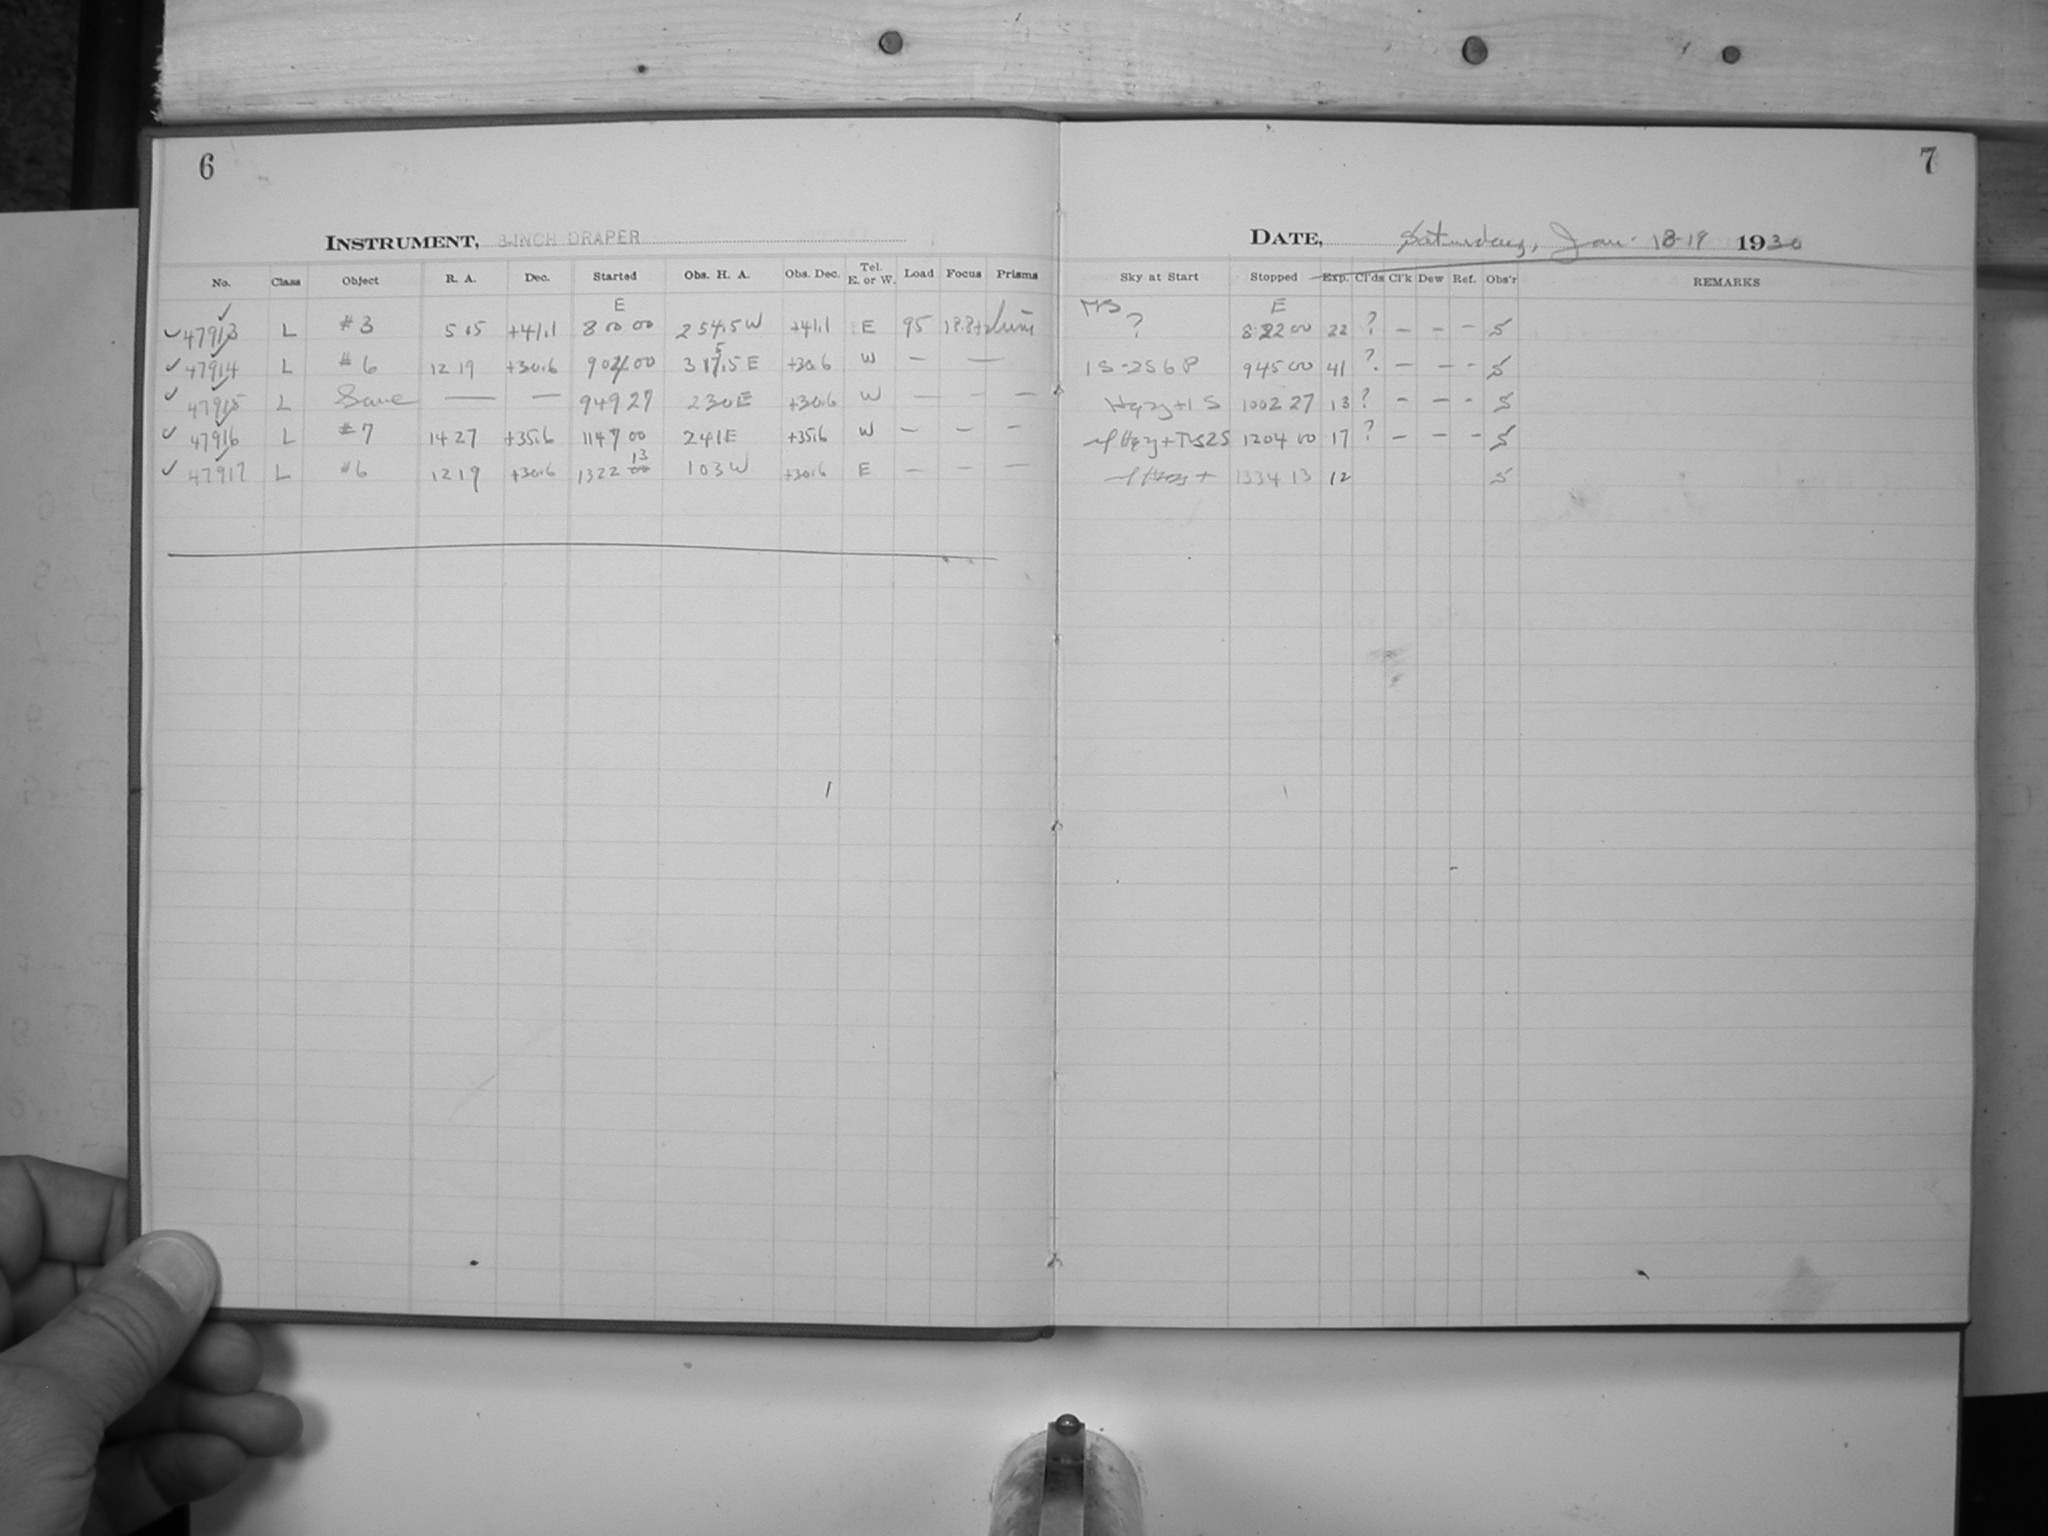 6
7
INSTRUMENT, 8-INCH DRAPER
DATE, Saturday, Jan. 18-19 1930
No. Class Object R. A. Dec. Started Obs. H. A. Obs. Dec. Tel. E. or W. Load Focus Prisms Sky at Start Stopped Exp. Cl'ds Cl'k Dew Ref. Obs'r REMARKS
E E
47913 L #3 5 05 +41.1 8 00 00 254.5 W +41.1 E 95 ? 8 22 00 22 ? — — — S
47914 L #6 12 19 +30.6 9 04 00 E +30.6 W — — 1S-2S6P 9 45 00 41 ? — — - S
47915 L Same — — 9 49 27 230 E +30.6 W — - — Hazy+1S 10 02 27 13 ? - — - S
47916 L #7 14 27 +35.6 11 47 00 241 E +35.6 W — — — 12 04 00 17 ? — — - S
47917 L #6 12 19 +30.6 13 22 13 103 W +30.6 E — — — 13 34 13 12 S